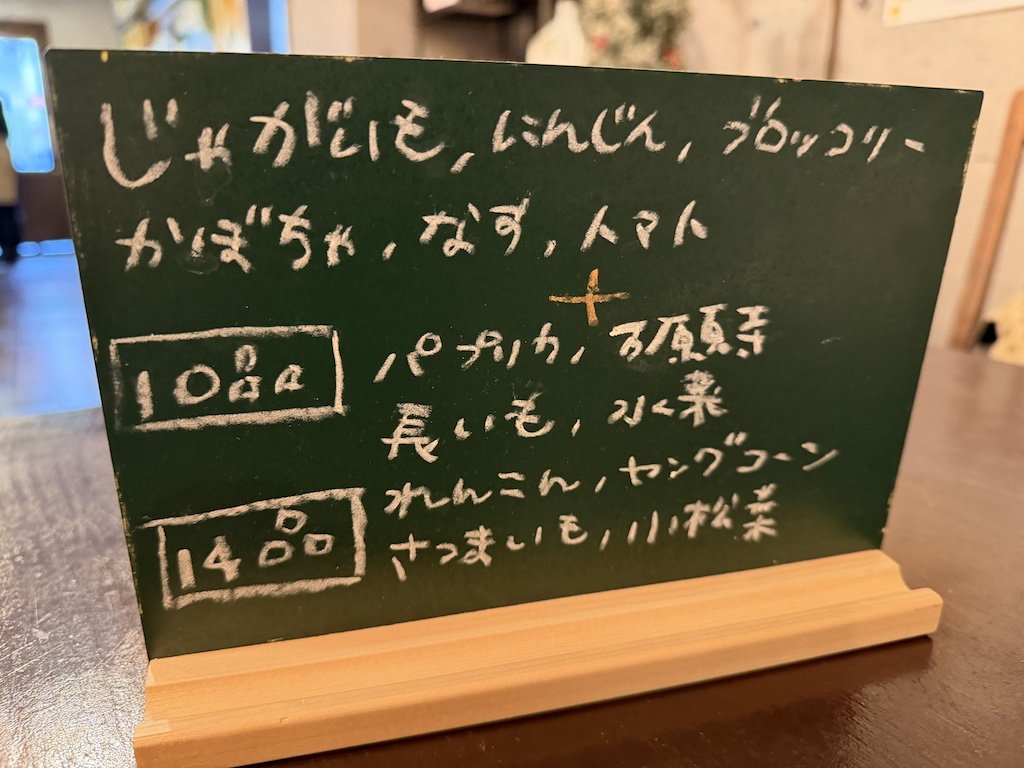 じゃがいも,にんじん,ブロッコリー
かぼちゃ,なす,トマト
+
10品 パプリカ,万願寺
長いも,水菜
14品 れんこん,ヤングコーン
さつまいも,小松菜